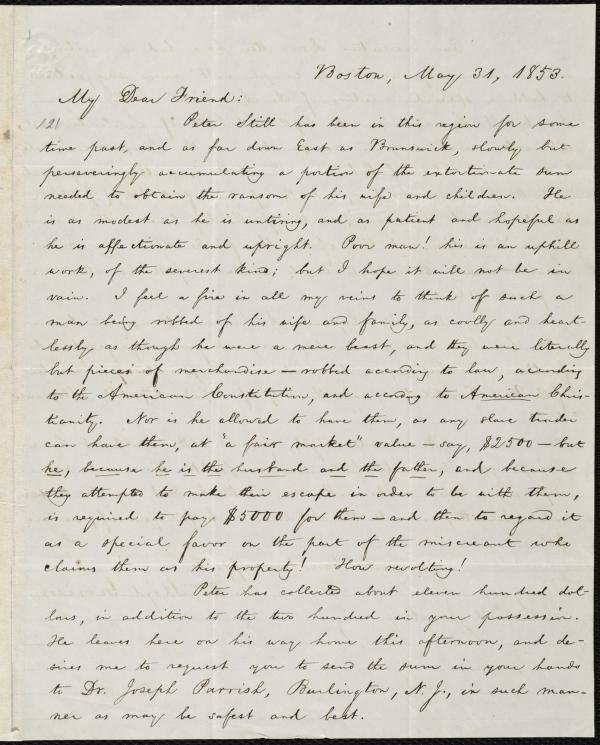 Boston, May 31, 1853.
My Dear Friend:
121
Peter Still has been in this region for some
time past, and as far down East as Brunswick, slowly but
perseveringly accumulating a portion of the extortionate sum
needed to obtain the ransom of his wife and children. He
is as modest as he is untiring, and as patient and hopeful as
he is affectionate and upright. Poor man! his is an uphill
work, of the severest kind; but I hope it will not be in
vain. I feel a fire in all my veins to think of such a
man being robbed of his wife and family, as coolly and heart-
lessly as though he were a mere beast, and they were literally
but pieces of merchandise — robbed according to law, according
to the American Constitution, and according to American Chris-
tianity. Nor is he allowed to have them, as any slave trader
can have them, at "a fair market" value — say, $2500 — but
he, because he is the husband and the father, and because
they attempted to make their escape in order to be with them,
is required to pay $5000 for them — and then to regard it
as a special favor on the part of the miscreant who
claims them as his property! How revolting!
Peter has collected about eleven hundred dol-
lars, in addition to the two hundred in your possession.
He leaves here on his way home this afternoon, and de-
sires me to request you to send the sum in your hands
to Dr. Joseph Parrish, Burlington, N. J., in such man-
ner as may be safest and best.